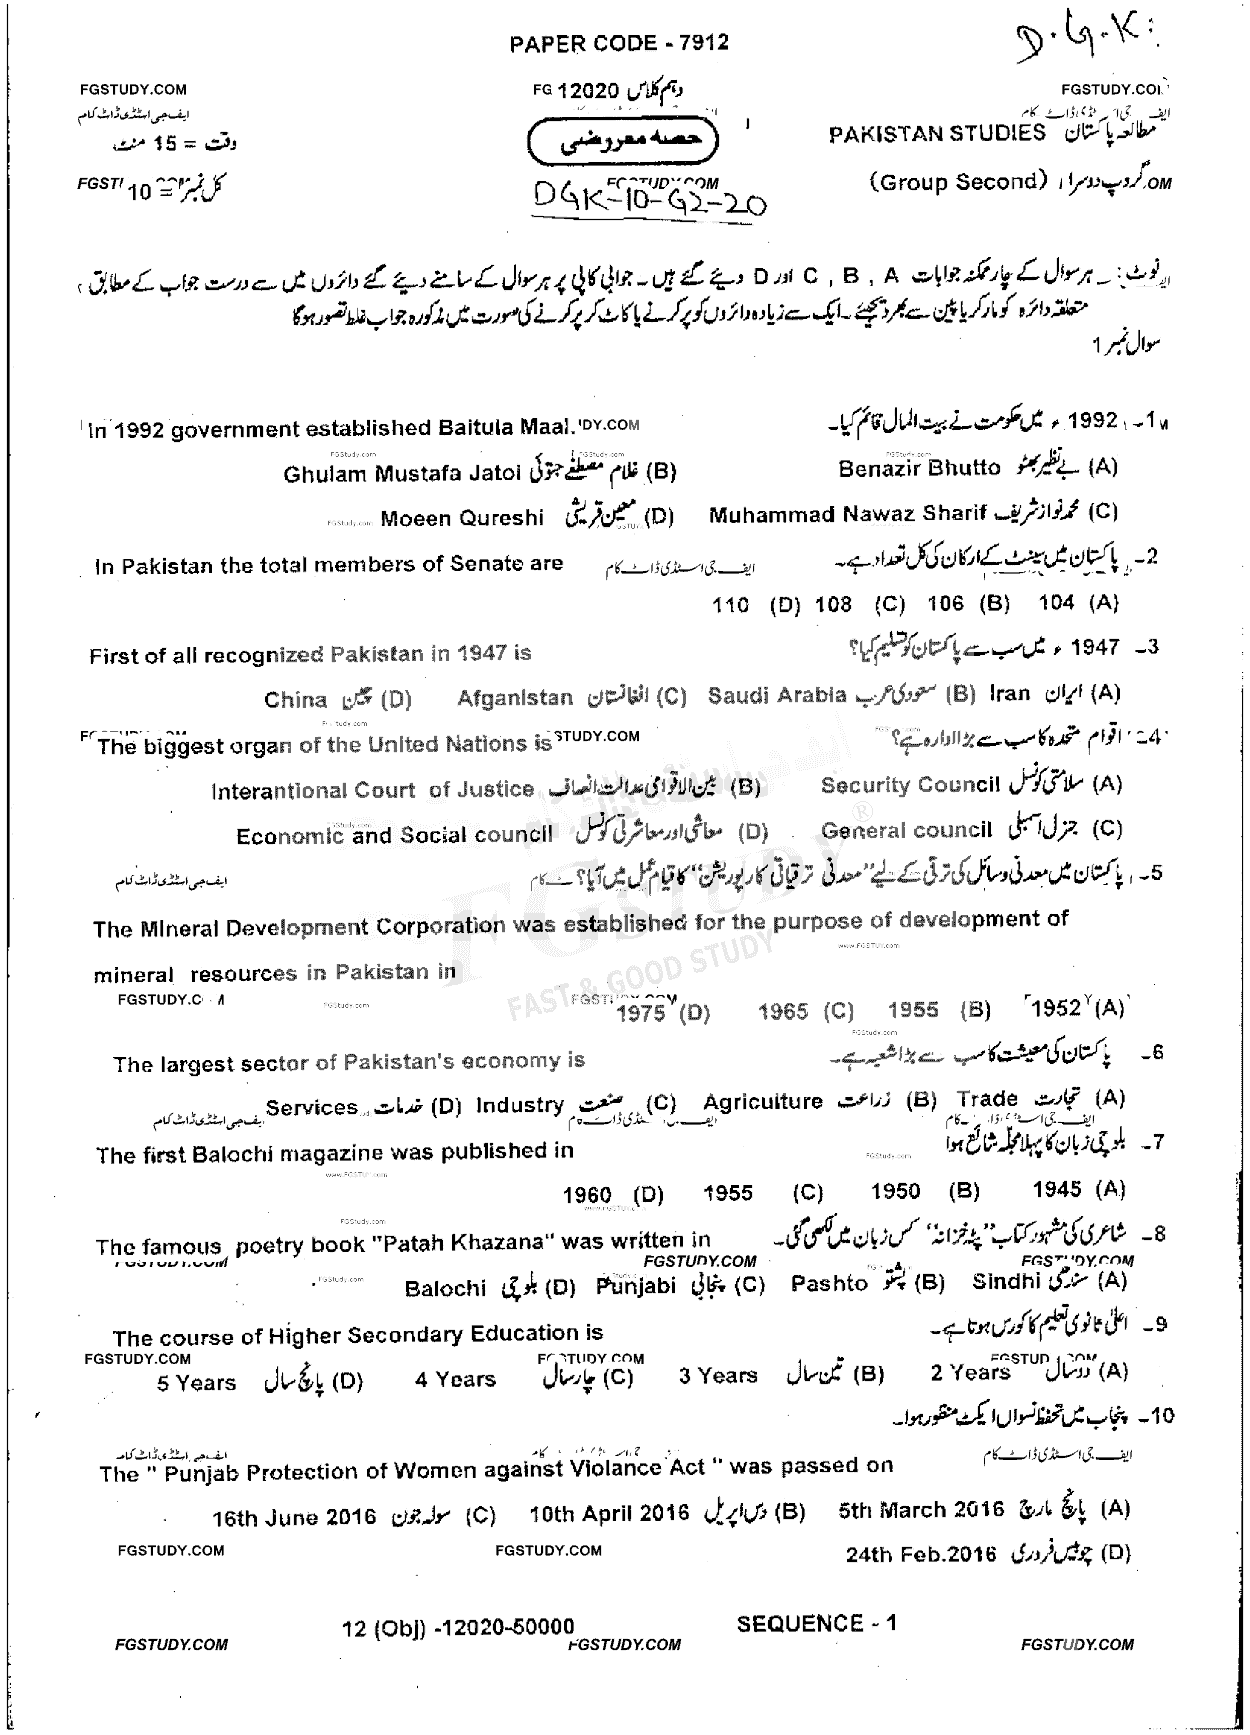 PAPER CODE - 7912
D.G.K:
FGSTUDY.COM
FG 12020 دہم کلاس
ایف جی اسٹڈی ڈاٹ کام
ایف جی اسٹڈی ڈاٹ کام
وقت = 15 منٹ
حصہ معروضی
PAKISTAN STUDIES مطالعہ پاکستان
کل نمبر = 10
DGK-10-G2-20
(Group Second) گروپ دوسرا
نوٹ: ۔ ہر سوال کے چار ممکنہ جوابات A , B , C اور D دیے گئے ہیں ۔ جوابی کاپی پر ہر سوال کے سامنے دیے گئے دائروں میں سے درست جواب کے مطابق
متعلقہ دائرہ کو مارکر یا پین سے بھر دیجئے ۔ ایک سے زیادہ دائروں کو پر کرنے یا کاٹ کر پر کرنے کی صورت میں مذکورہ جواب غلط تصور ہوگا
سوال نمبر 1
1- 1992ء میں حکومت نے بیت المال قائم کیا۔
In 1992 government established Baitula Maal.
(A) بے نظیر بھٹو Benazir Bhutto (B) غلام مصطفےٰ جتوئی Ghulam Mustafa Jatoi
(C) محمد نواز شریف Muhammad Nawaz Sharif (D) معین قریشی Moeen Qureshi
2- پاکستان میں سینٹ کے ارکان کی کل تعداد ہے۔
In Pakistan the total members of Senate are
ایف جی اسٹڈی ڈاٹ کام
(A) 104 (B) 106 (C) 108 (D) 110
3- 1947ء میں سب سے پاکستان کو تسلیم کیا؟
First of all recognized Pakistan in 1947 is
(A) ایران Iran (B) سعودی عرب Saudi Arabia (C) افغانستان Afganistan (D) چین China
4- اقوام متحدہ کا سب سے بڑا ادارہ ہے؟
The biggest organ of the United Nations is
(A) سلامتی کونسل Security Council (B) بین الاقوامی عدالت انصاف Interantional Court of Justice
(C) جنرل اسمبلی General council (D) معاشی اور معاشرتی کونسل Economic and Social council
5- پاکستان میں معدنی وسائل کی ترقی کے لیے "معدنی ترقیاتی کارپوریشن" کا قیام عمل میں آیا؟
ایف جی اسٹڈی ڈاٹ کام
FGSTUDY
FAST & GOOD STUDY
The Mineral Development Corporation was established for the purpose of development of
www.FGSTUDY.com
mineral resources in Pakistan in
(A) 1952 (B) 1955 (C) 1965 (D) 1975
6- پاکستان کی معیشت کا سب سے بڑا شعبہ ہے۔
The largest sector of Pakistan's economy is
(A) تجارت Trade (B) زراعت Agriculture (C) صنعت Industry (D) خدمات Services
ایف جی اسٹڈی ڈاٹ کام
7- بلوچی زبان کا پہلا مجلہ شائع ہوا
The first Balochi magazine was published in
(A) 1945 (B) 1950 (C) 1955 (D) 1960
8- شاعری کی مشہور کتاب "پٹہ خزانہ" کس زبان میں لکھی گئی۔
The famous poetry book "Patah Khazana" was written in
FGSTUDY.COM
(A) سندھی Sindhi (B) پشتو Pashto (C) پنجابی Punjabi (D) بلوچی Balochi
9- اعلیٰ ثانوی تعلیم کا کورس ہوتا ہے۔
The course of Higher Secondary Education is
FGSTUDY.COM
(A) دو سال 2 Years (B) تین سال 3 Years (C) چار سال 4 Years (D) پانچ سال 5 Years
10- پنجاب میں تحفظ نسواں ایکٹ منظور ہوا۔
ایف جی اسٹڈی ڈاٹ کام
The " Punjab Protection of Women against Violance Act " was passed on
(A) پانچ مارچ 5th March 2016 (B) دس اپریل 10th April 2016 (C) سولہ جون 16th June 2016
(D) چوبیس فروری 24th Feb.2016
FGSTUDY.COM FGSTUDY.COM
12 (Obj) -12020-50000 SEQUENCE - 1
FGSTUDY.COM FGSTUDY.COM FGSTUDY.COM